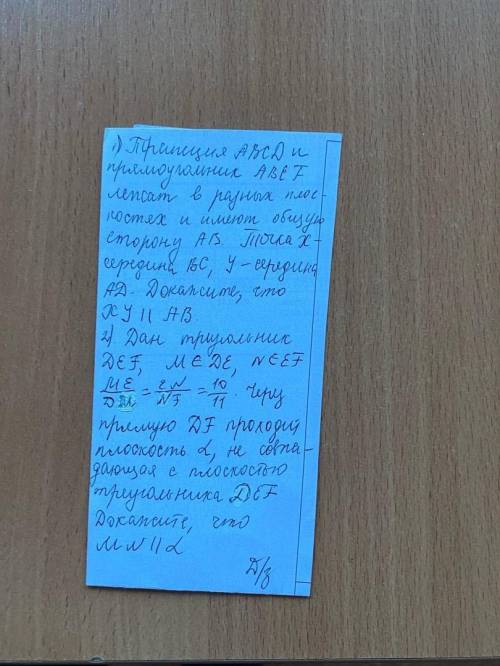 1) Трапеция ABCD и
прямоугольник ABEF
лежат в разных плос-
костях и имеют общую
сторону AB. Точка X-
середина BC, Y-середина
AD. Докажите, что
XY || AB.
2) Дан триугольник
DEF, M∈DE, N∈EF
ME/DM = EN/NF = 10/11. Через
прямую DF проходит
плоскость α, не совпа-
дающая с плоскостью
треугольника DEF
Докажите, что
MN || α
Д/з